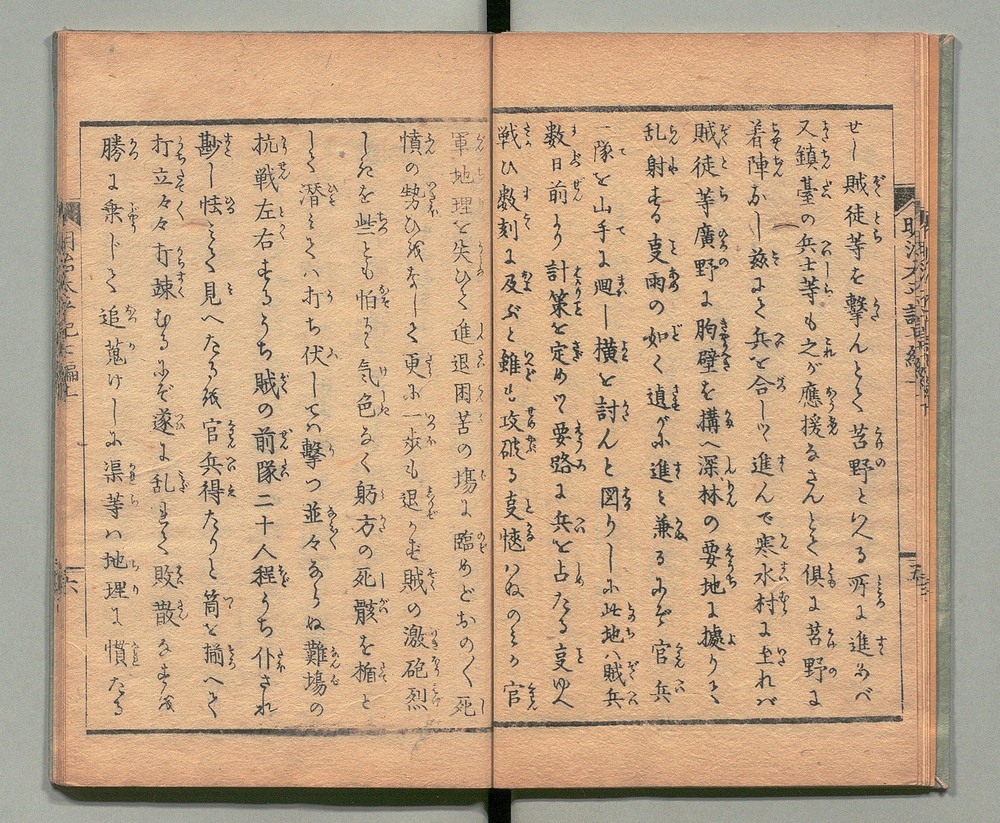 せし賊徒等を撃んとて苔野といへる所に進みべ
又鎮臺の兵士等も之が應援なさんとて倶に苔野に
着陣なし茲にて兵を合しつゝ進んで寒水村に至れバ
賊徒等廣野に胸壁を搆へ深林の要地に據りて
乱射する事雨の如く道がに進ミ兼るにぞ官兵
一隊を山手に廻し横を討んと図りしに此地ハ賊兵
数日前より計策を定めつゝ要路に兵を占たる事ゆへ
戦ひ数刻に及ぶと雖も攻破る事愜はぬのミか官
軍地理を失ひて進退困苦の場に臨めどおのく死
憤の勢ひをなして更に一歩も退かず賊の激砲烈
しきを些とも怕れず気色なく躬方の死骸を楯と
して潜ミてハ打ち伏してハ撃つ並々ならぬ難場の
抗戦左右するうち賊の前隊二十人程うち仆され
尠し怯ミて見へたるを官兵得たりと筒を揃へて
打立々々打竦むるにぞ遂に乱れて敗散なすを
勝に乗じて追蒐けしに渠等ハ地理に慣たる